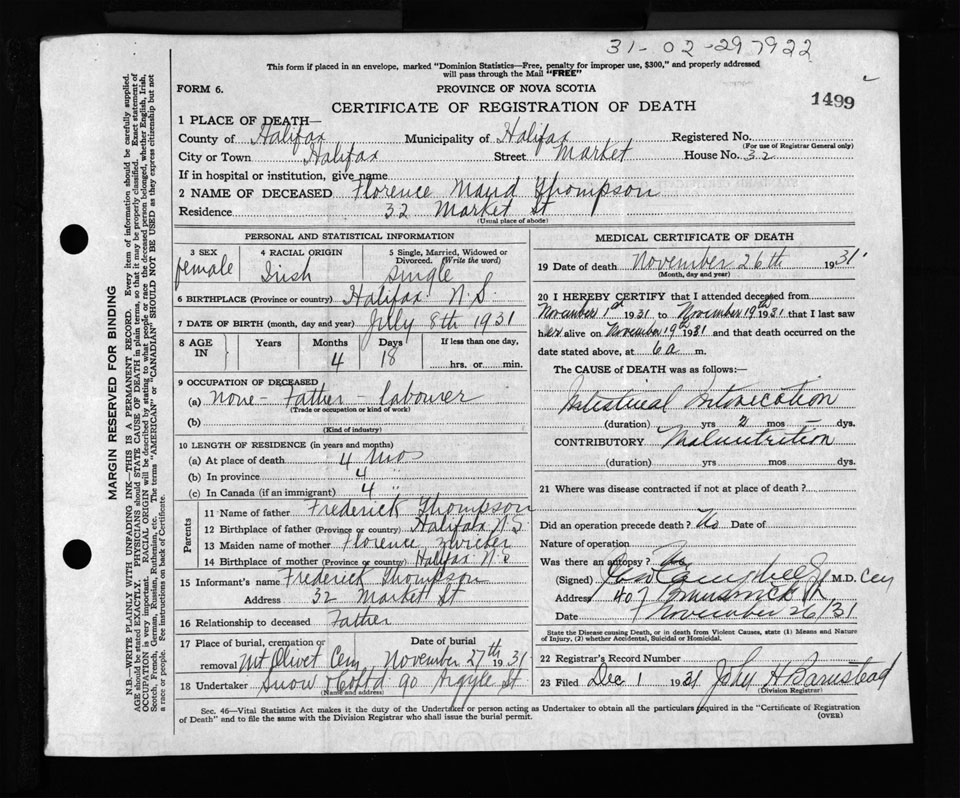 31-02-297922
This form if placed in an envelope, marked "Dominion Statistics—Free, penalty for improper use, $300," and properly addressed
will pass through the Mail "FREE"
FORM 6.
PROVINCE OF NOVA SCOTIA
CERTIFICATE OF REGISTRATION OF DEATH
1499
1 PLACE OF DEATH—
County of Halifax Municipality of Halifax Registered No.
(For use of Registrar General only)
City or Town Halifax Street Market House No. 32
If in hospital or institution, give name
2 NAME OF DECEASED Florence Maud Thompson
Residence 32 Market St
(Usual place of abode)
PERSONAL AND STATISTICAL INFORMATION
3 SEX female
4 RACIAL ORIGIN Irish
5 Single, Married, Widowed or Divorced. (Write the word) single
6 BIRTHPLACE (Province or country) Halifax N.S.
7 DATE OF BIRTH (month, day and year) July 8th 1931
8 AGE IN Years Months 4 Days 18 If less than one day, hrs. or min.
9 OCCUPATION OF DECEASED
(a) None - Father - labourer
(Trade or occupation or kind of work)
(b)
(Kind of industry)
10 LENGTH OF RESIDENCE (in years and months)
(a) At place of death 4 mos
(b) In province 4 "
(c) In Canada (if an immigrant) 4 "
Parents
11 Name of father Frederick Thompson
12 Birthplace of father (Province or country) Halifax N.S
13 Maiden name of mother Florence Zwicker
14 Birthplace of mother (Province or country) Halifax N.S
15 Informant's name Frederick Thompson
Address 32 Market St
16 Relationship to deceased Father
17 Place of burial, cremation or removal Mt Olivet Cem Date of burial November 27th 1931
18 Undertaker Snow & Co Ltd 90 Argyle St
(Name and address)
MEDICAL CERTIFICATE OF DEATH
19 Date of death November 26th 1931
(Month, day and year)
20 I HEREBY CERTIFY that I attended deceased from
November 1st 1931 to November 19th 1931 that I last saw
her alive on November 19th 1931 and that death occurred on the
date stated above, at 6 a m.
The CAUSE of DEATH was as follows:—
Intestinal Intoxication
(duration) yrs 2 mos dys.
CONTRIBUTORY Malnutrition
(duration) yrs mos dys.
21 Where was disease contracted if not at place of death?
Did an operation precede death? No Date of
Nature of operation
Was there an autopsy? No
(Signed) Campbell M.D.
Address 407 Brunswick St
Date November 26/31
State the Disease causing Death, or in death from Violent Causes, state (1) Means and Nature
of Injury, (2) whether Accidental, Suicidal or Homicidal.
22 Registrar's Record Number
23 Filed Dec 1 1931 John H Barnstead
(Division Registrar)
Sec. 46—Vital Statistics Act makes it the duty of the Undertaker or person acting as Undertaker to obtain all the particulars required in the "Certificate of Registration
of Death" and to file the same with the Division Registrar who shall issue the burial permit.
(OVER)
MARGIN RESERVED FOR BINDING
N.B.—WRITE PLAINLY WITH UNFADING INK—THIS IS A PERMANENT RECORD. Every item of information should be carefully supplied.
AGE should be stated EXACTLY. PHYSICIANS should STATE CAUSE OF DEATH in plain terms, so that it may be properly classified. Exact statement of
OCCUPATION is very important. RACIAL ORIGIN will be described by stating to what people or race the deceased person belonged, whether English, Irish,
Scotch, French, German, Russian, Ruthenian, etc. The terms "AMERICAN" or "CANADIAN" SHOULD NOT BE USED as they express citizenship but not
a race or people. Fee instructions on back of Certificate.